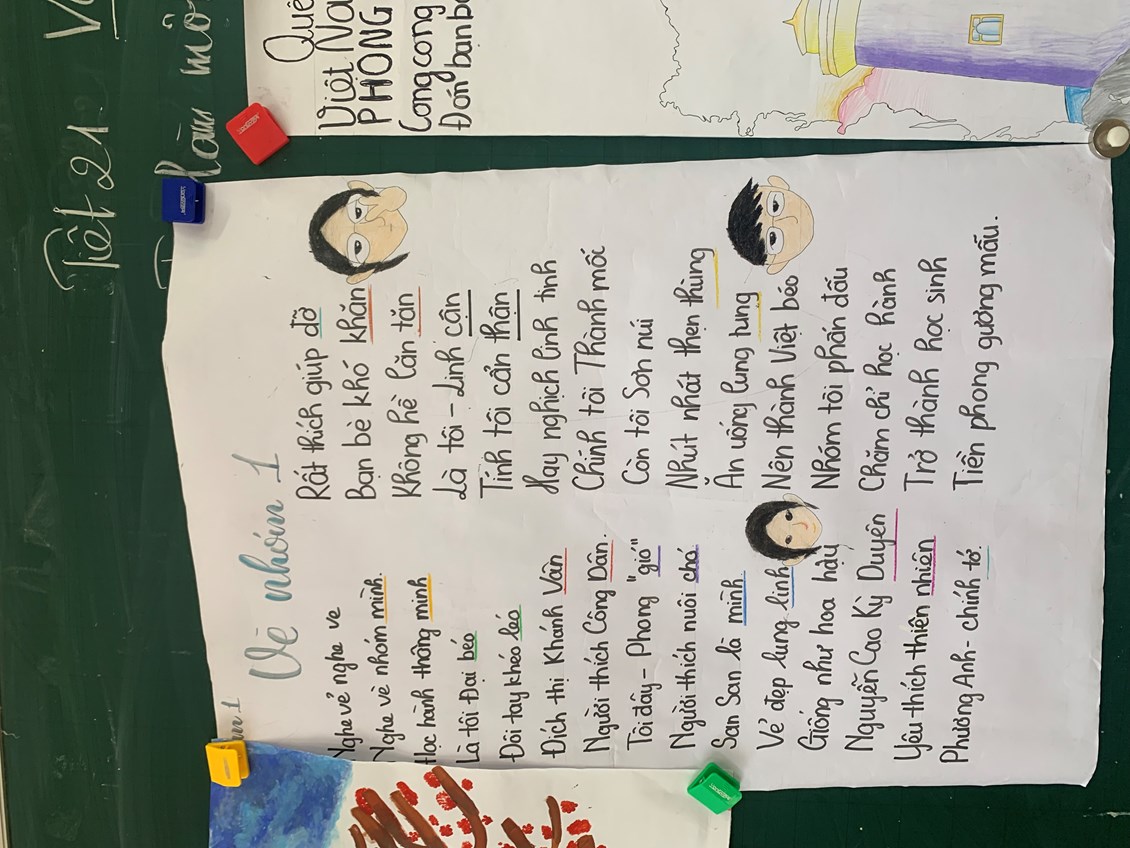 Tiết 21
Làm mô
Vè nhóm 1
Nghe vẻ nghe ve
Nghe vè nhóm mình.
Học hành thông minh
Là tôi Đại béo
Đôi tay khéo léo
Đích thị Khánh Vân
Người thích Công Dân.
Tôi đây - Phong "gió"
Người thích nuôi chó
San San là mình
Vẻ đẹp lung linh
Giống như hoa hậu
Nguyễn Cao Kỳ Duyên
Yêu thích thiên nhiên
Phương Anh - chính tớ.
Rất thích giúp đỡ
Bạn bè khó khăn
Không hề lăn tăn
Là tôi - Linh cận
Tính tôi cẩn thận
Hay nghịch linh tinh
Chính tôi Thành mối
Còn tôi Sơn núi
Nhút nhát thẹn thùng
Ăn uống lung tung
Nên thành Việt béo
Nhóm tôi phấn đấu
Chăm chỉ học hành
Trở thành học sinh
Tiền phong gương mẫu.
Quê
Việt Na
PHONG
Cong cong
Đón bạn bè